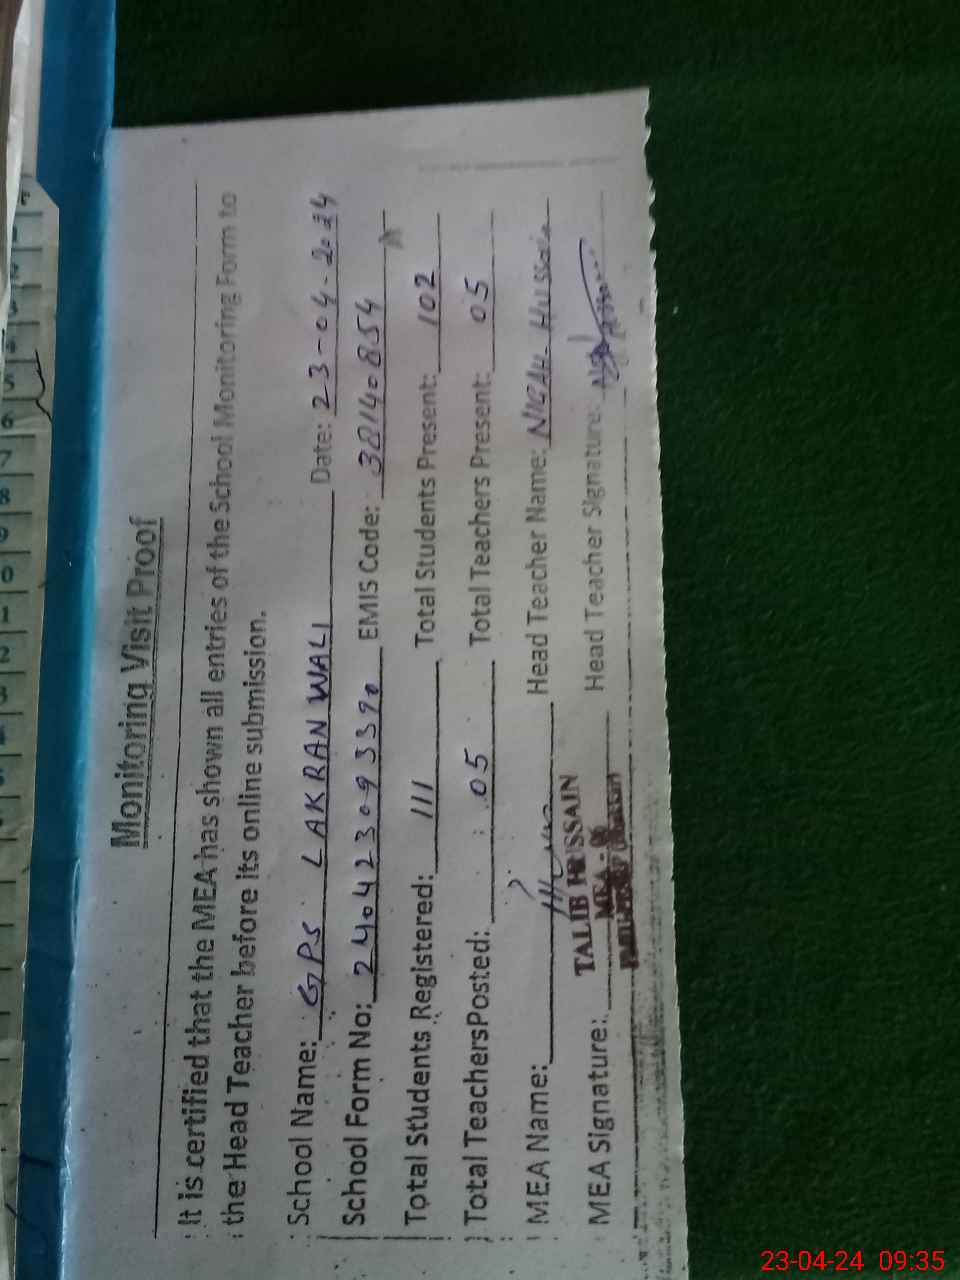 Monitoring Visit Proof
It is certified that the MEA has shown all entries of the School Monitoring Form to
the Head Teacher before its online submission.
School Name: GPS LAKRAN WALI Date: 23-04-2024
School Form No: 240423093390 EMIS Code: 38140854
Total Students Registered: 111 Total Students Present: 102
Total TeachersPosted: 05 Total Teachers Present: 05
MEA Name: Head Teacher Name: NIGAH HUSSAIN
TALIB HUSSAIN
MEA Signature: MEA - Head Teacher Signature:
23-04-24 09:35